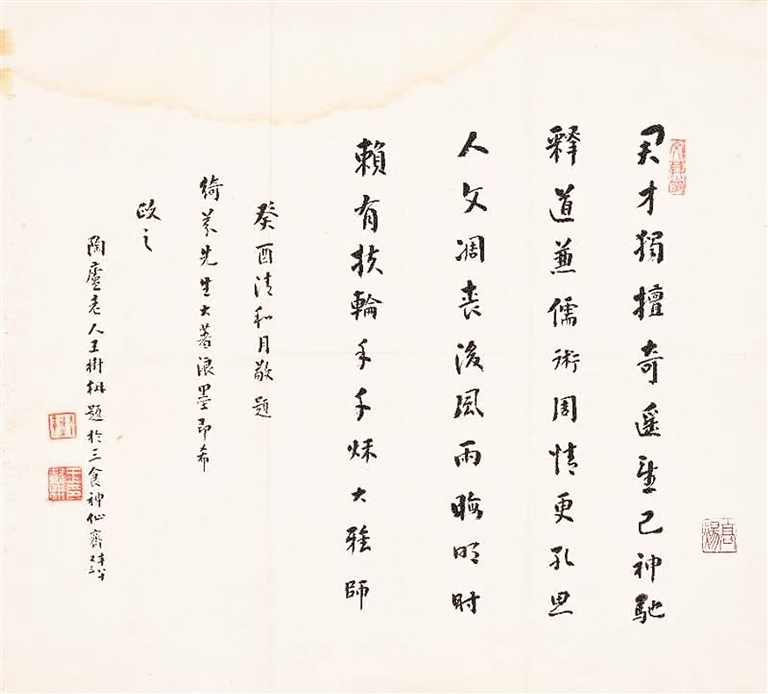 君才獨擅奇遥望已神馳
釋道兼儒術周情更孔思
人文凋喪後風雨晦明時
賴有扶輪手千秌大雅師
癸酉清和月敬題
綺芬先生大著浪墨即希
政之
陶廬老人王樹枏題於三食神仙齋年八十又三